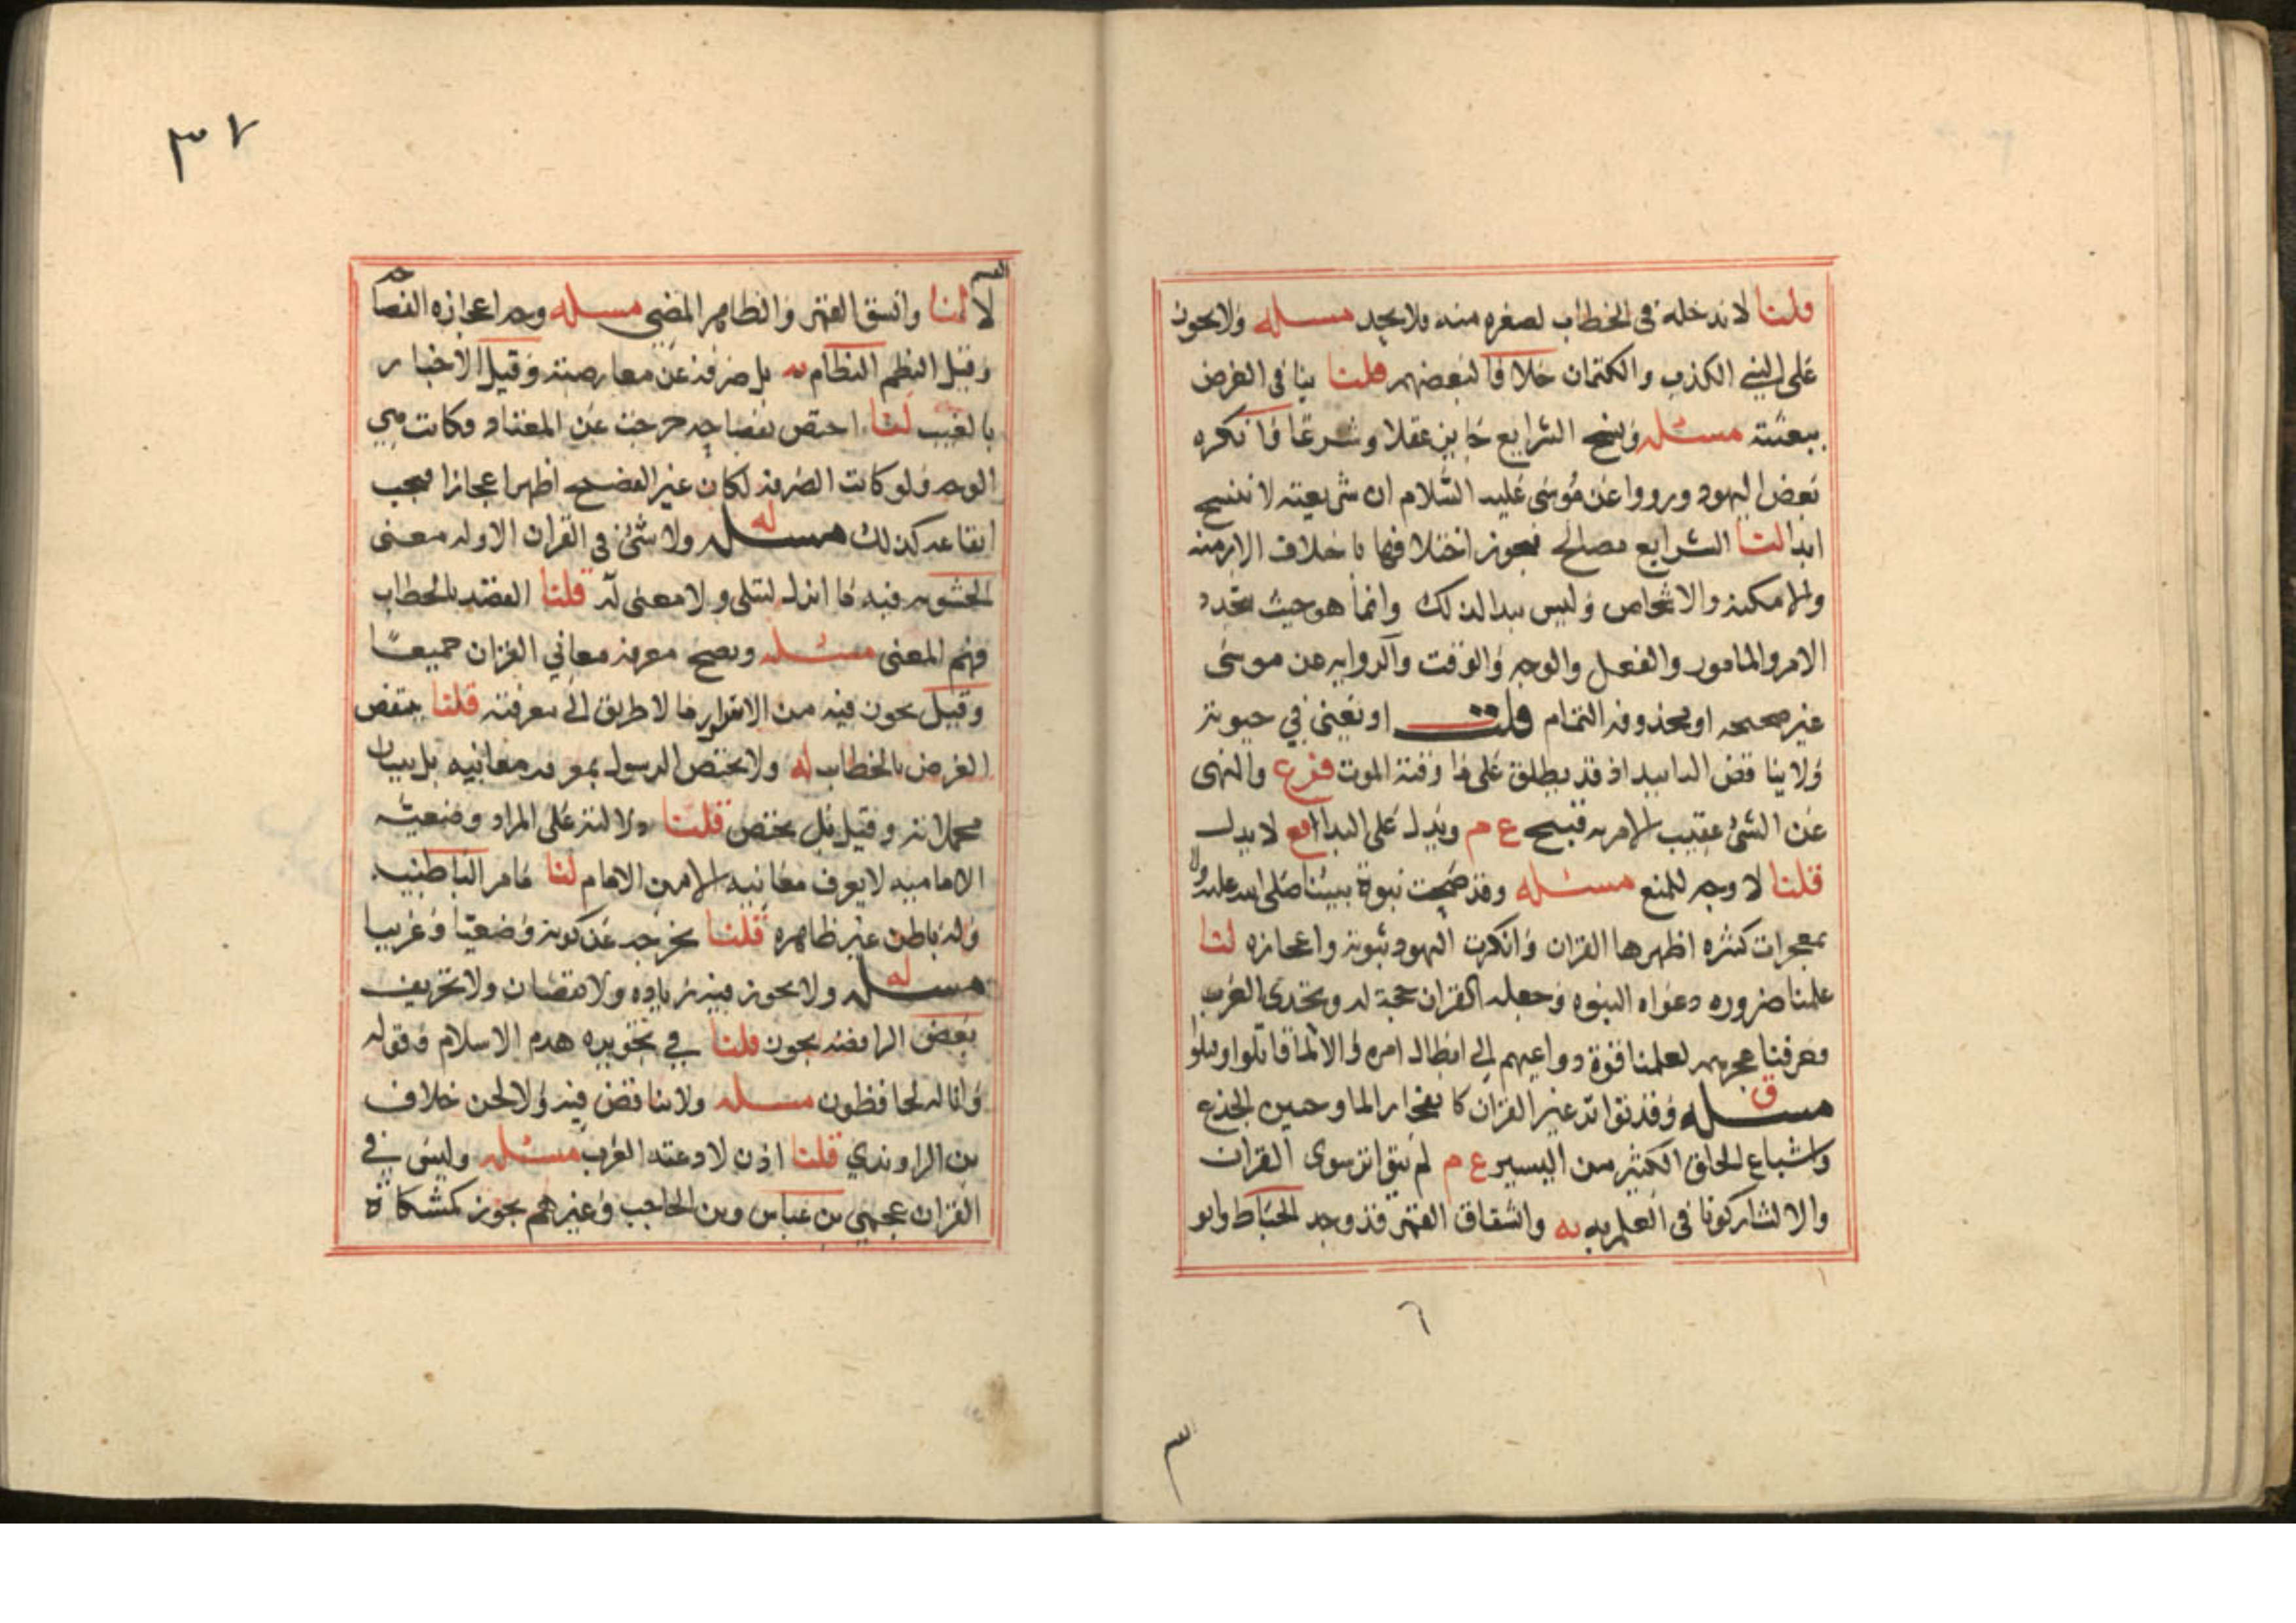 قلنا لا ندخله فى الخطاب لصغره منه ولا يجد مسله ولا يجوز
على النبي الكذب والكتمان خلافا لبعضهم قلنا ينافى الغرض
ببعثته مسئله ونسخ الشرايع جايز عقلا وشرعا فانكره
بعض اليهود ورووا عن موسى عليه السلام ان شريعته لا تنسخ
ابدا لنا الشرايع مصالح فيجوز اختلافها باختلاف الازمنه
والامكنه والاشخاص وليس ببدا لذلك وانما هو حيث يتحد
الامر والمامور والفعل والوجه والوقت والروايه عن موسى
غير صحيحه او محذوفه التمام قلت او تعني في حيوته
ولا يناقض التابيد اذ قد يطلق على ما وقته الموت فرع والنهى
عن الشئ عقيب الامر به قبيح ع م ويدل على البدا لا يدل
قلنا لا وجه للمنع مسئله وقد صحت نبوة نبينا صلى الله عليه
بمعجزات كثره اظهرها القران وانكرت اليهود نبوته واعجازه لنا
علمنا ضروره دعواه النبوه وجعله القران حجة له وتحدى العرب
وعرفنا عجزهم لعلمنا قوة دواعيهم الى ابطال امره والا لما قاتلوا
مسله ق وقد تواتر غير القران كانفجار الما وحنين الجذع
واشباع الخلق الكثير من اليسير ع م لم يتواتر سوى القران
والا لشاركونا فى العلم به وانشقاق القمر قد وجد الخياط وابو
٦
٣٧
لا لنا وانشق القمر والظاهر المضى مسله ووجه اعجازه الفصا
حه
وقيل النظم النظام بل صرفه عن معارضته وقيل الاخبار
بالغيب لنا اختص بفصاحه خرجت عن المعتاد فكانت هي
الوجه ولو كانت الصرفه لكان غير الفصيح اظهر اعجازا فيجب
ايقاعه كذلك مسله ولا شئ فى القران الا وله معنى
الحشويه فيه ما انزل ليتلى ولا معنى له قلنا القصد بالخطاب
فهم المعنى مسئله ويصح معرفه معاني القران جميعا
وقيل يجوز فيه من الاسرار ما لا طريق الى معرفته قلنا ينقض
الغرض بالخطاب له ولا يختص الرسول بمعرفه معانيه بل ببيان
مجملاته وقيل بل يختص قلنا دلالته على المراد وضعيه
الاماميه لا يعرف معانيه الا من الامام لنا ما مر الباطنيه
وله باطن غير ظاهره قلنا يخرجه عن كونه وضعيا وعربيا
مسله ولا يجوز فيه زياده ولا نقصان ولا تحريف
بعض الرافضه يجوز قلنا في تجويزه هدم الاسلام وقوله
وانا له لحافظون مسله ولا تناقض فيه ولا لحن خلاف
بن الراوندي قلنا اذن لادعته العرب مسئله وليس في
القران عجمي بن عباس وبن الحاجب وغيرهم يجوز كمشكاة